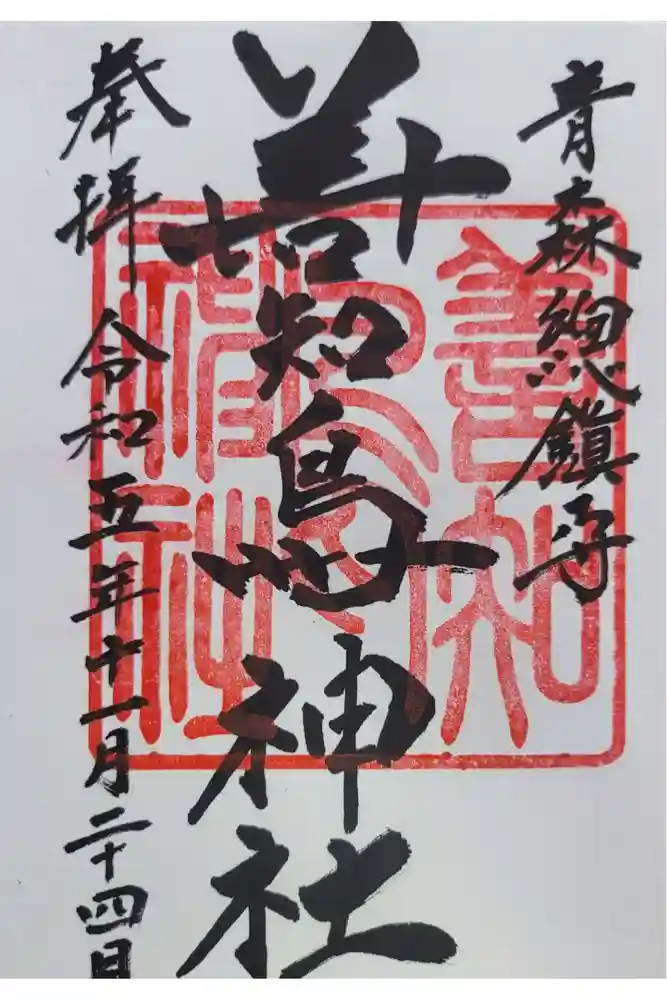 青森總鎮守
善知鳥神社
奉拝 令和五年十一月二十四日
善知鳥神社